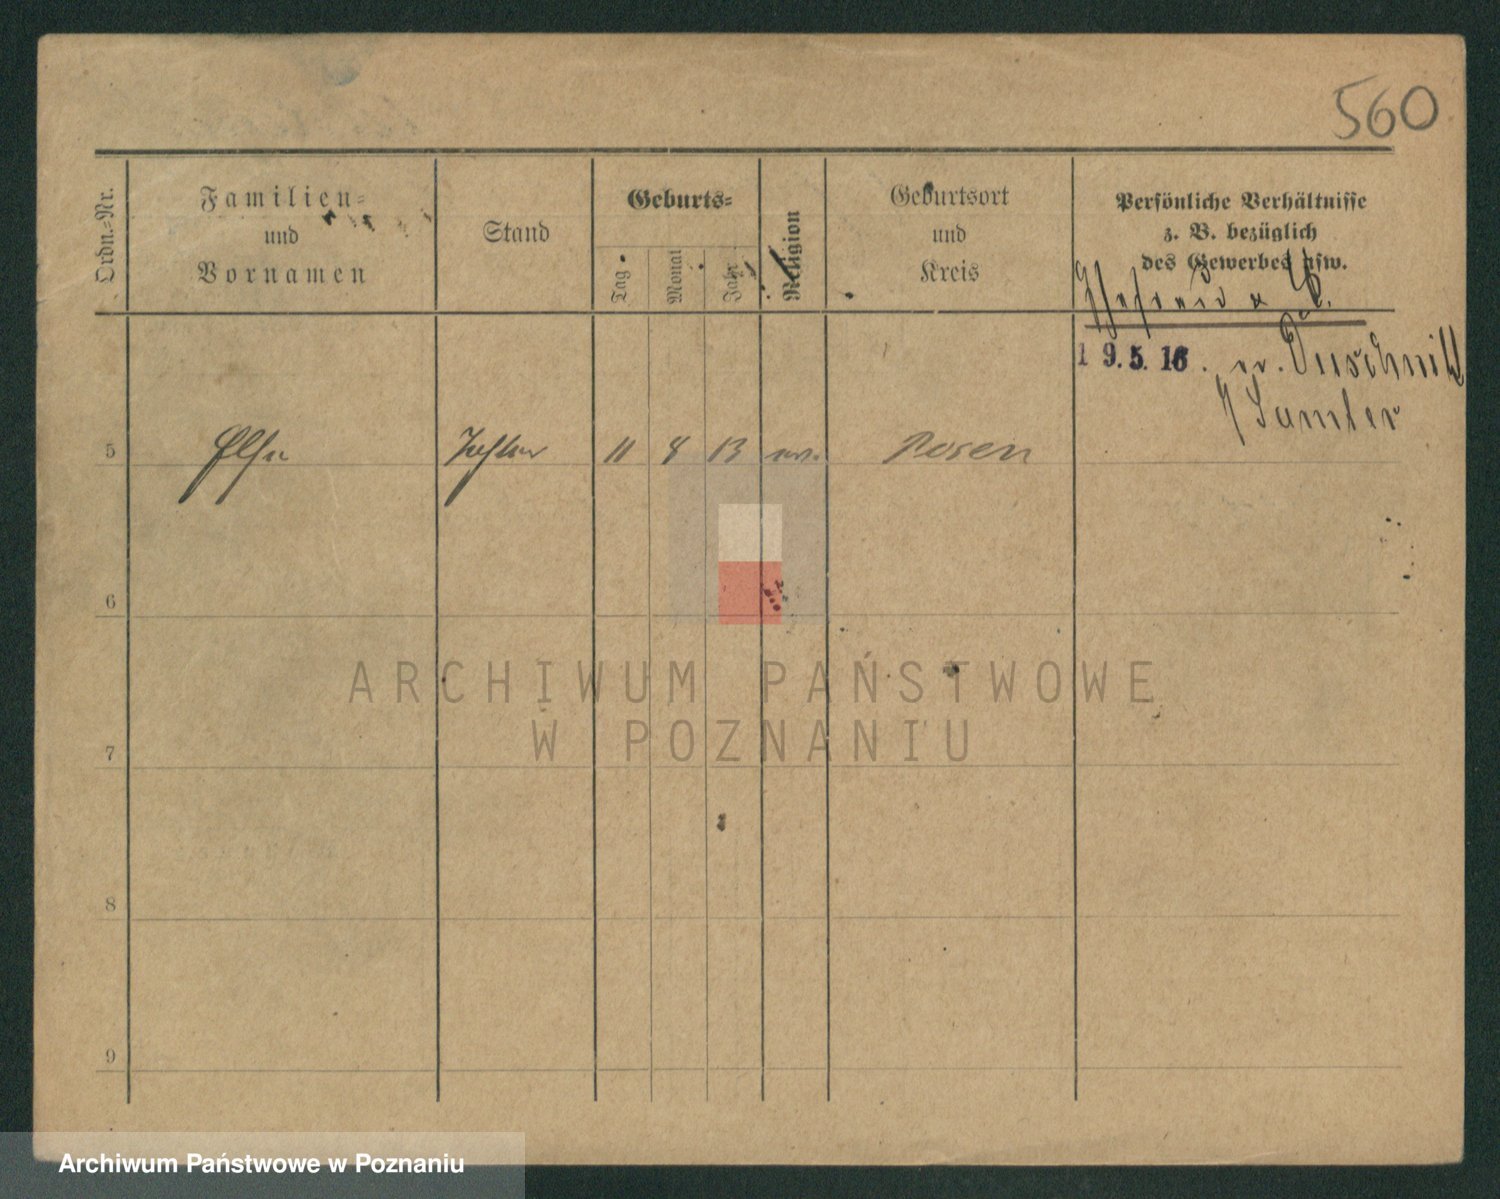 560
Ordn.-Nr.
Familien-
und
Vornamen
Stand
Geburts-
Tag
Monat
Jahr
Religion
Geburtsort
und
Kreis
Persönliche Verhältnisse
z. B. bezüglich
des Gewerbes usw.
19.5.16. Duschnik
Samter
5 Else Tochter 11 4 13 Posen
6
7
8
9
ARCHIWUM PAŃSTWOWE
W POZNANIU
Archiwum Państwowe w Poznaniu